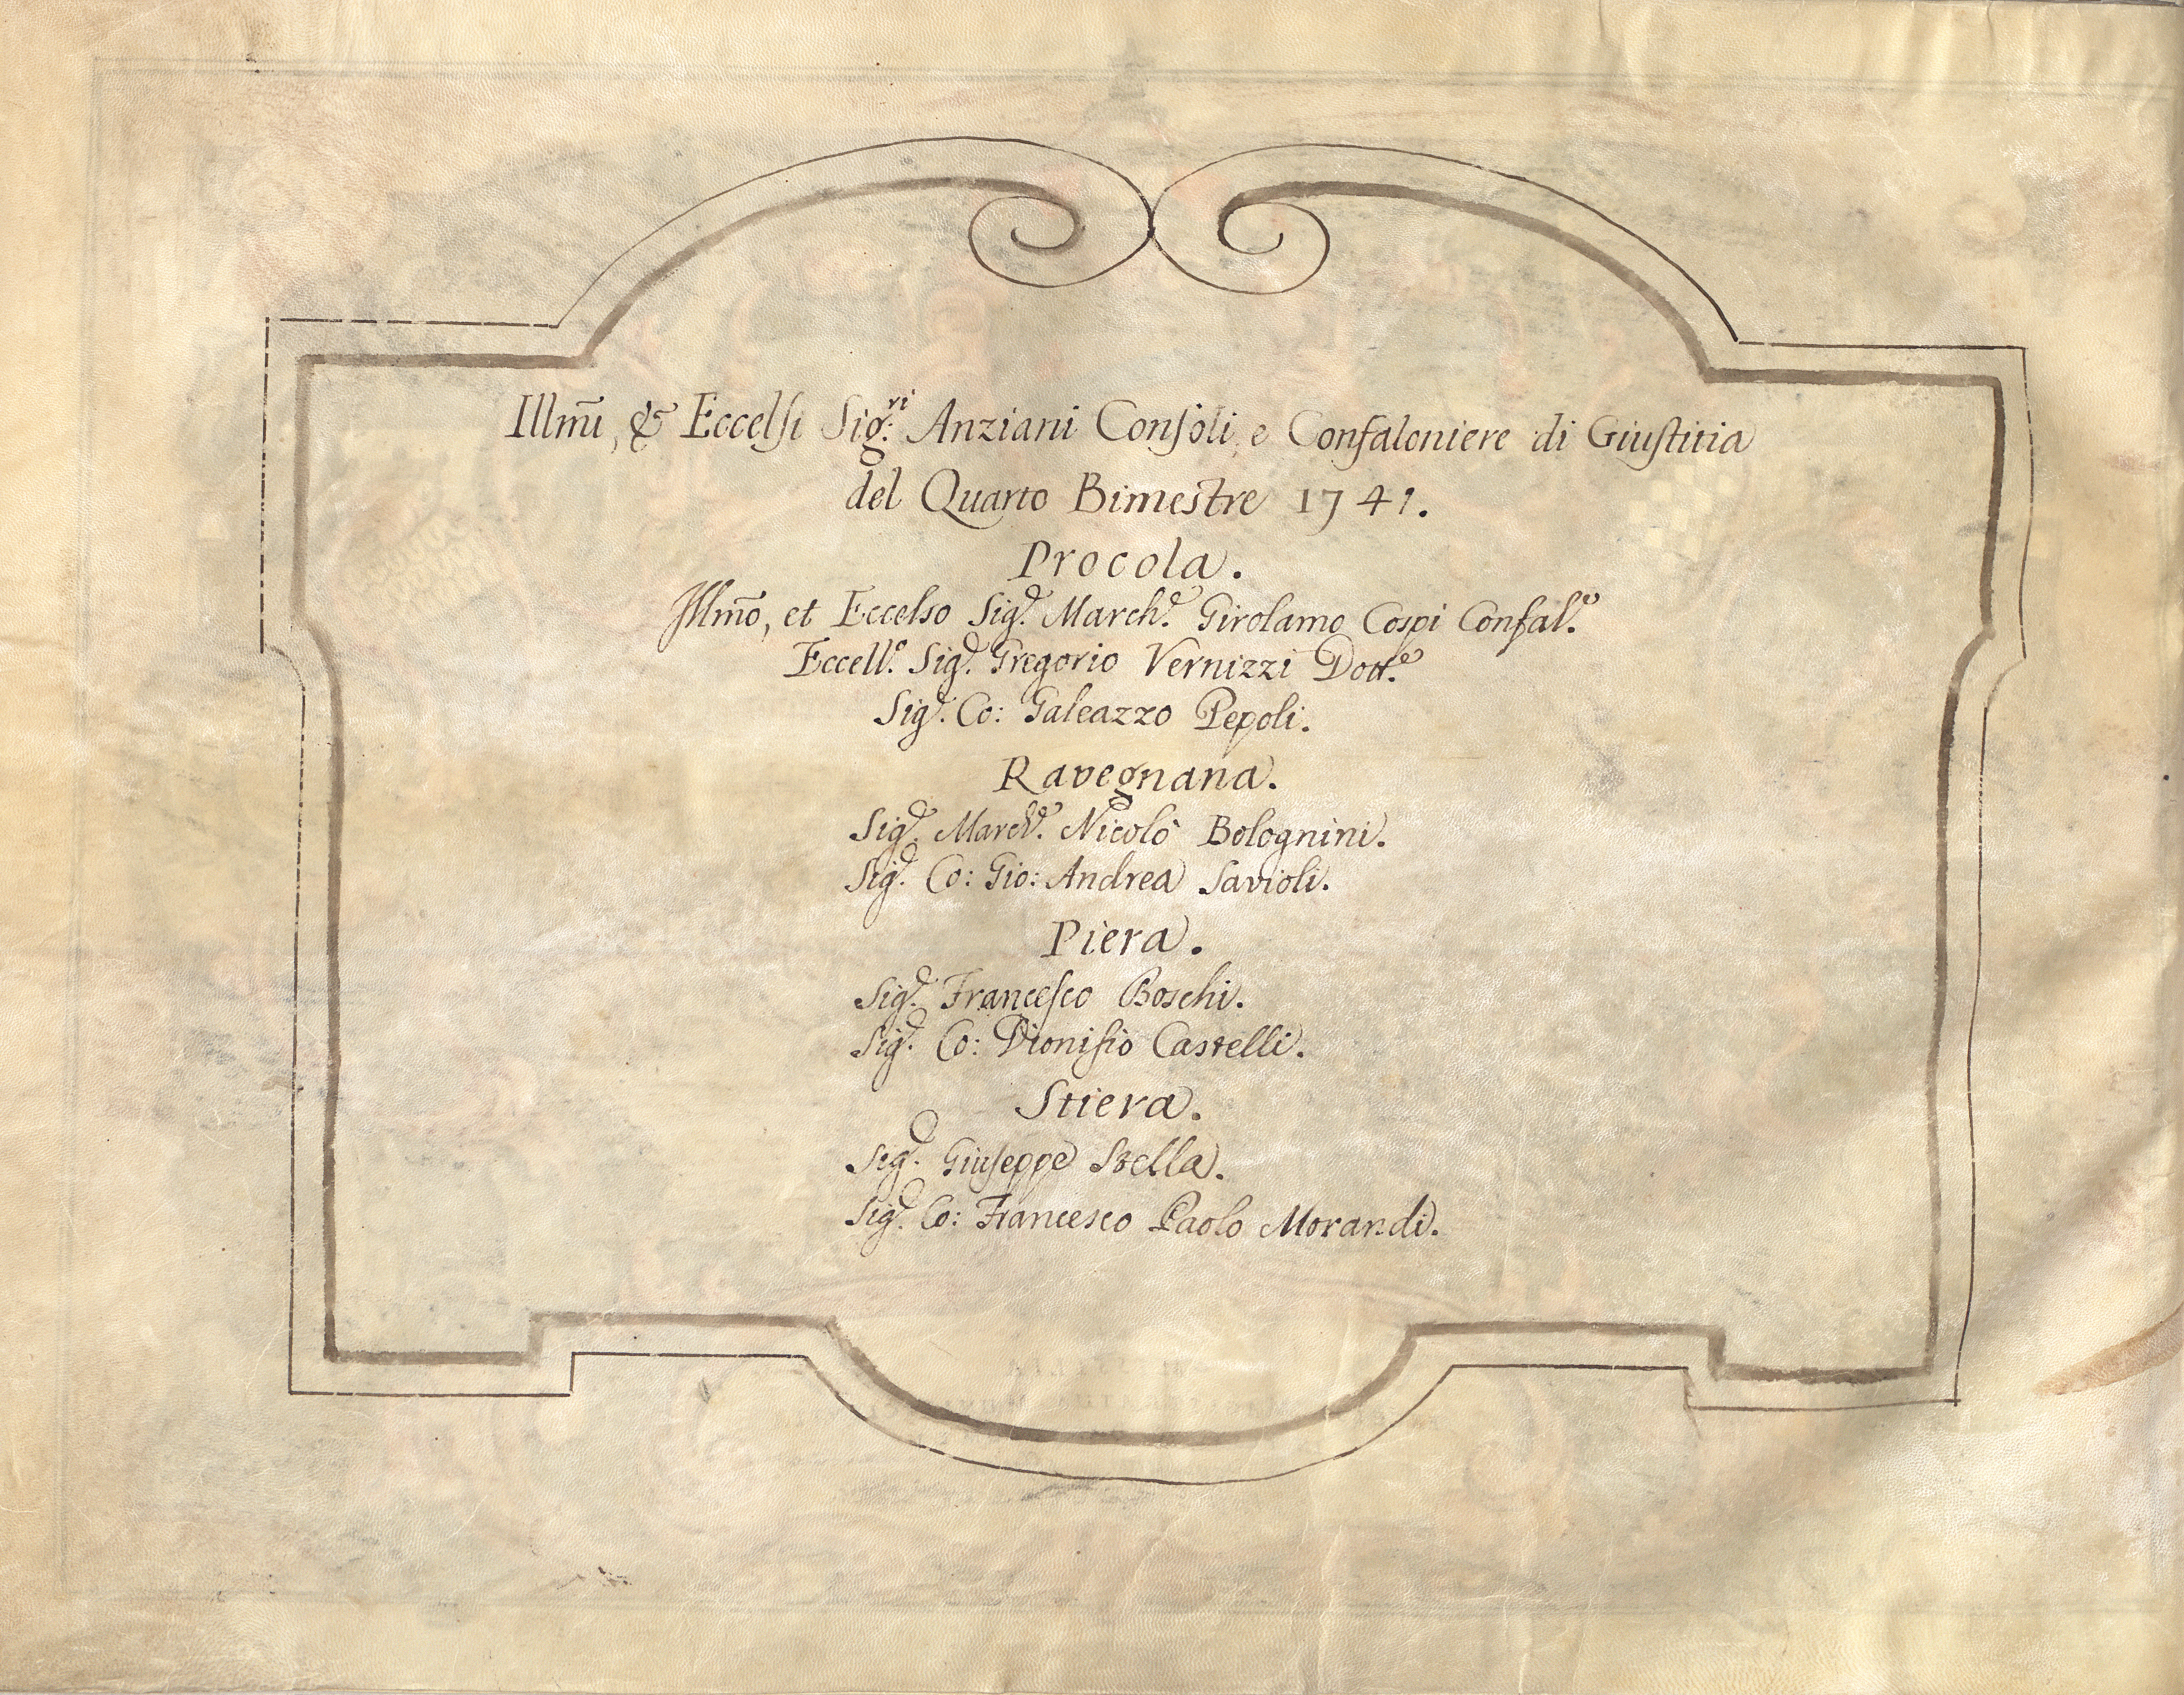 Illmi, & Eccelsi Sig.ri Anziani Consoli, e Confaloniere di Giustitia
del Quarto Bimestre 1741.
Procola.
Illmo, et Eccelso Sig.r March.e Girolamo Cospi Confal.e
Eccell.e Sig.r Gregorio Vernizzi Dott.e
Sig.r Co: Galeazzo Pepoli.
Ravegnana.
Sig.r March.e Nicolò Bolognini.
Sig.r Co: Gio: Andrea Savioli.
Piera.
Sig.r Francesco Boschi.
Sig.r Co: Dionisio Castelli.
Stiera.
Sig.r Giuseppe Stella.
Sig.r Co: Francesco Paolo Morandi.